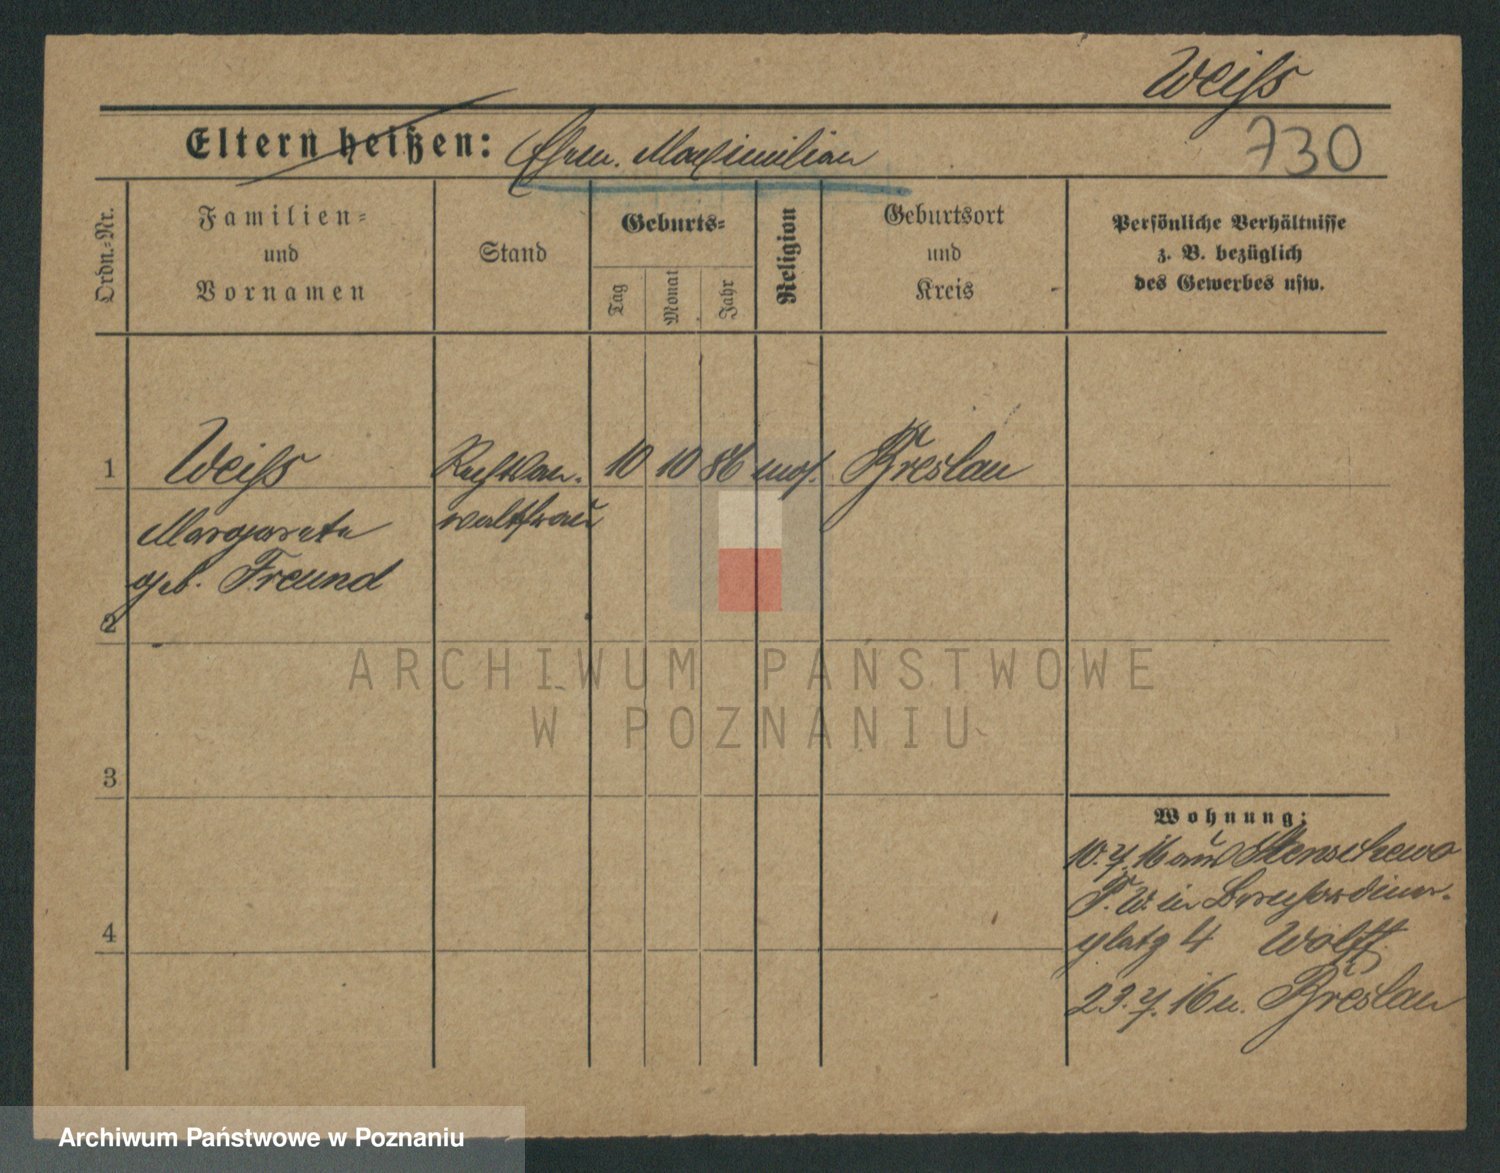 Weiß
Eltern heißen: Ehem. Maximilian
730
Ordn.=Nr.
Familien=
und
Vornamen
Stand
Geburts=
Tag
Monat
Jahr
Religion
Geburtsort
und
Kreis
Persönliche Verhältnisse
z. B. bezüglich
des Gewerbes usw.
1 Weiß Rechtsan- 10 10 86 mos. Breslau
Margarete waltsfrau
geb. Freund
2
ARCHIWUM PAŃSTWOWE
W POZNANIU
3
Wohnung:
10.7.16 aus Stenschewo
P. W. in Bernhardiner-
4
platz 4 Wolff
23.7.16 n. Breslau
Archiwum Państwowe w Poznaniu